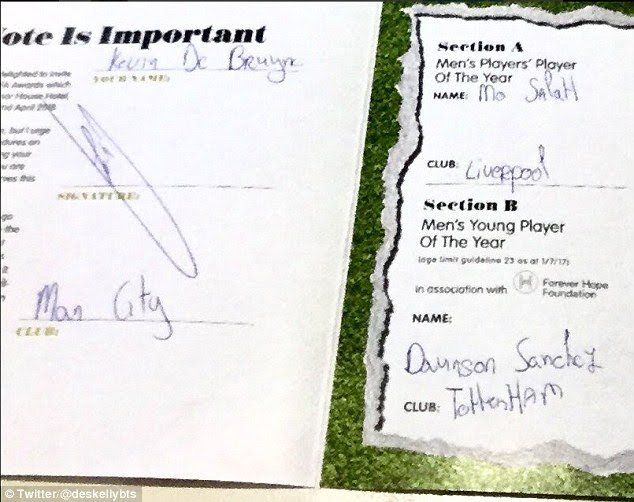 ote Is Important
Kevin De Bruyne
YOUR NAME:
delighted to invite
A Awards which
or House Hotel,
nd April 2018
, but I urge
dures on
ng your
ou are
SIGNATURE:
go
the
Man City
CLUB:
Section A
Men's Players' Player
Of The Year
NAME: Mo SalaH
CLUB: Liverpool
Section B
Men's Young Player
Of The Year
(age limit guideline 23 as at 1/7/17)
in association with Forever Hope
Foundation
NAME:
Davinson Sanchez
CLUB: TottenHAM
© Twitter @deskellybts